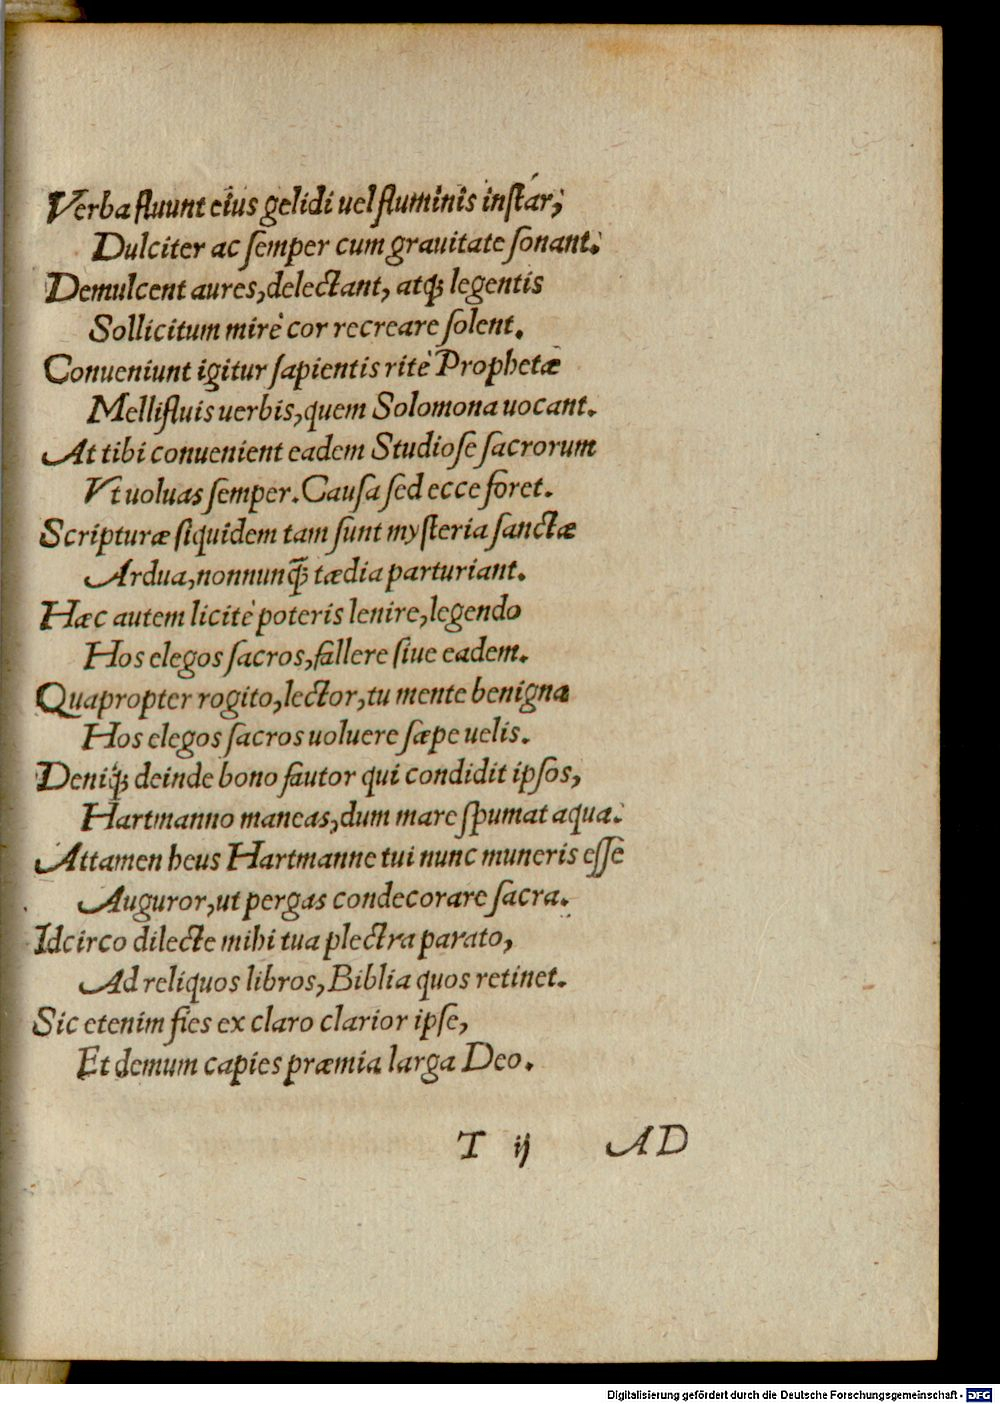 Verba fluunt eius gelidi uel fluminis inſtar,
Dulciter ac ſemper cum grauitate ſonant.
Demulcent aures, delectant, atqꝫ legentis
Sollicitum mirè cor recreare ſolent.
Conueniunt igitur ſapientis ritè Prophetæ
Mellifluis uerbis, quem Solomona uocant.
At tibi conuenient eadem Studioſe ſacrorum
Vt uoluas ſemper. Cauſa ſed ecce foret.
Scripturæ ſiquidem tam ſunt myſteria ſanctæ
Ardua, nonnunqꝫ̃ tædia parturiant.
Hæc autem licitè poteris lenire, legendo
Hos elegos ſacros, fallere ſiue eadem.
Quapropter rogito, lector, tu mente benigna
Hos elegos ſacros uoluere ſæpe uelis.
Deniqꝫ́ deinde bono fautor qui condidit ipſos,
Hartmanno maneas, dum mare ſpumat aqua.
Attamen heus Hartmanne tui nunc muneris eſſe
Auguror, ut pergas condecorare ſacra.
Idcirco dilecte mihi tua plectra parato,
Ad reliquos libros, Biblia quos retinet.
Sic etenim fies ex claro clarior ipſe,
Et demum capies præmia larga Deo.
T ij AD
Digitalisierung gefördert durch die Deutsche Forschungsgemeinschaft - DFG